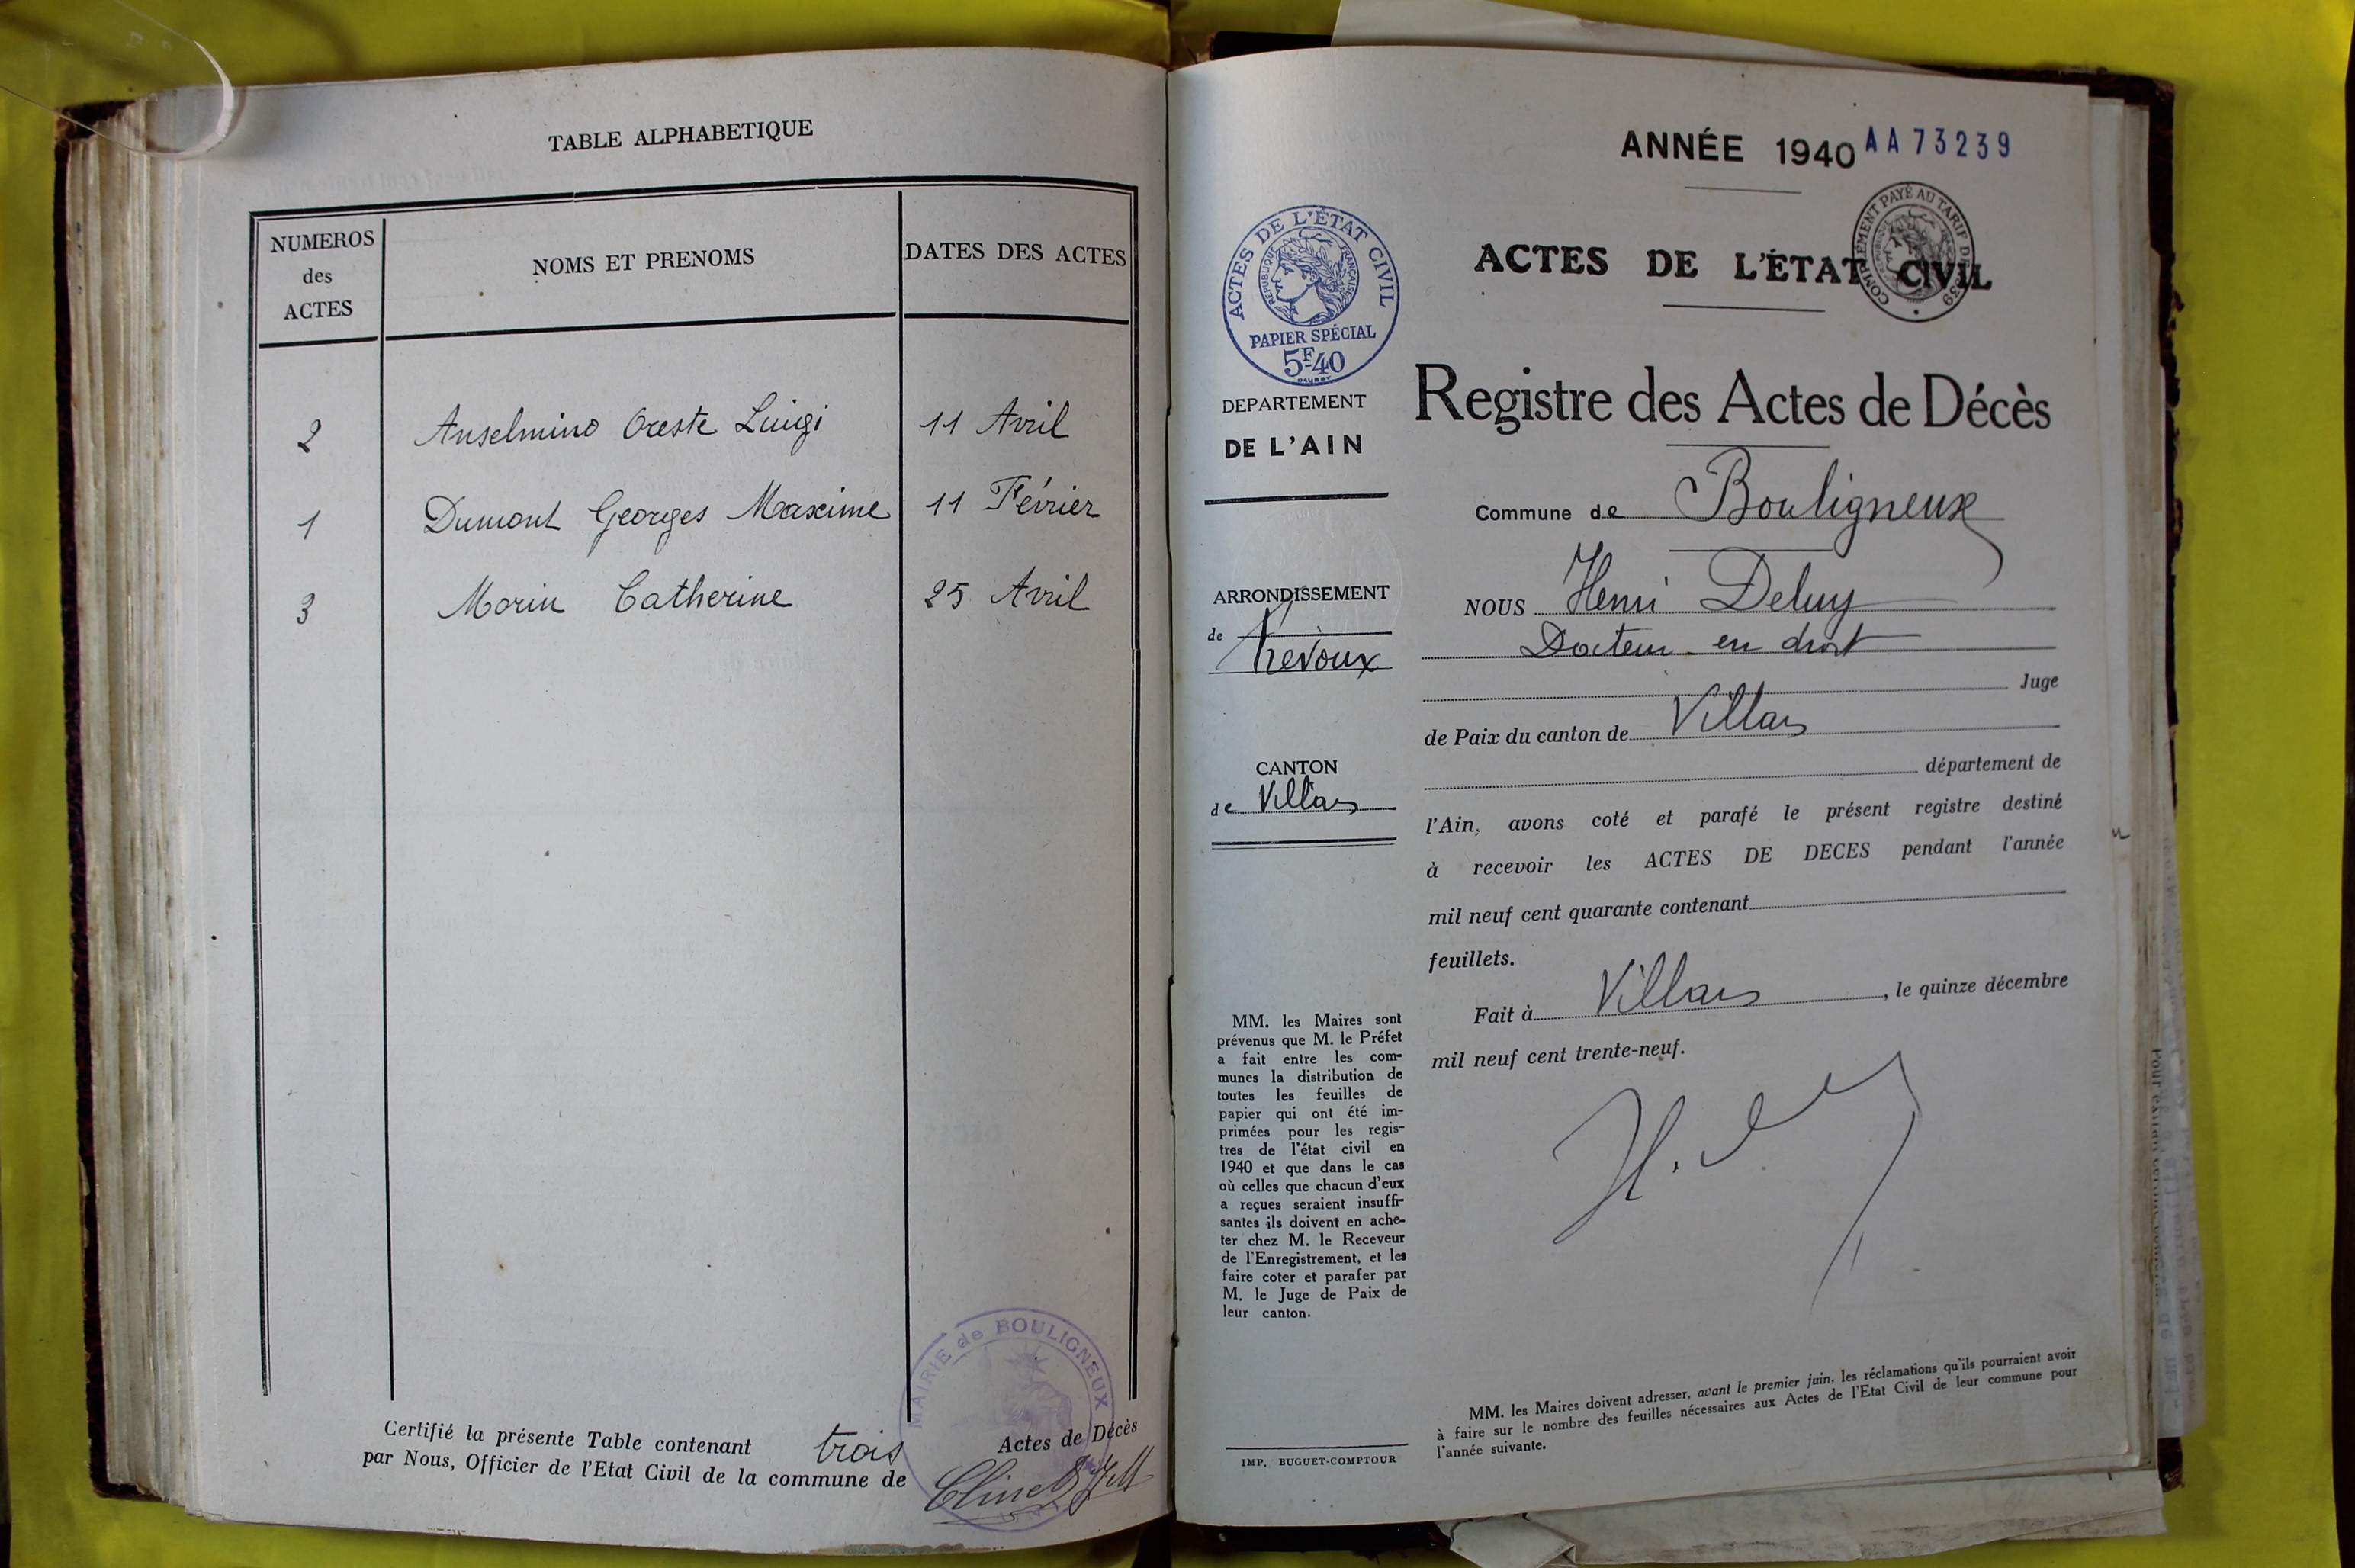 TABLE ALPHABETIQUE
NUMEROS
des
ACTES
NOMS ET PRENOMS
DATES DES ACTES
2 Anselmino Oreste Luigi 11 Avril
1 Dumont Georges Maxime 11 Février
3 Morin Catherine 25 Avril
Certifié la présente Table contenant trois Actes de Décès
par Nous, Officier de l'Etat Civil de la commune de
MAIRIE de BOULIGNEUX
ANNÉE 1940 AA 73239
ACTES DE L'ÉTAT CIVIL
COMPLÉMENT PAYÉ AU TARIF DE 1939
ACTES DE L'ÉTAT CIVIL
RÉPUBLIQUE FRANÇAISE
PAPIER SPÉCIAL
5F40
DEPARTEMENT
DE L'AIN
ARRONDISSEMENT
de Trévoux
CANTON
de Villars
MM. les Maires sont
prévenus que M. le Préfet
a fait entre les com-
munes la distribution de
toutes les feuilles de
papier qui ont été im-
primées pour les regis-
tres de l'état civil en
1940 et que dans le cas
où celles que chacun d'eux
a reçues seraient insuffi-
santes ils doivent en ache-
ter chez M. le Receveur
de l'Enregistrement, et les
faire coter et parafer par
M. le Juge de Paix de
leur canton.
IMP. BUGUET-COMPTOUR
Registre des Actes de Décès
Commune de Bouligneux
NOUS Henri Deluy
Docteur en droit
Juge
de Paix du canton de Villars
département de
l'Ain, avons coté et parafé le présent registre destiné
à recevoir les ACTES DE DECES pendant l'année
mil neuf cent quarante contenant
feuillets.
Fait à Villars, le quinze décembre
mil neuf cent trente-neuf.
MM. les Maires doivent adresser, avant le premier juin, les réclamations qu'ils pourraient avoir
à faire sur le nombre des feuilles nécessaires aux Actes de l'Etat Civil de leur commune pour
l'année suivante.